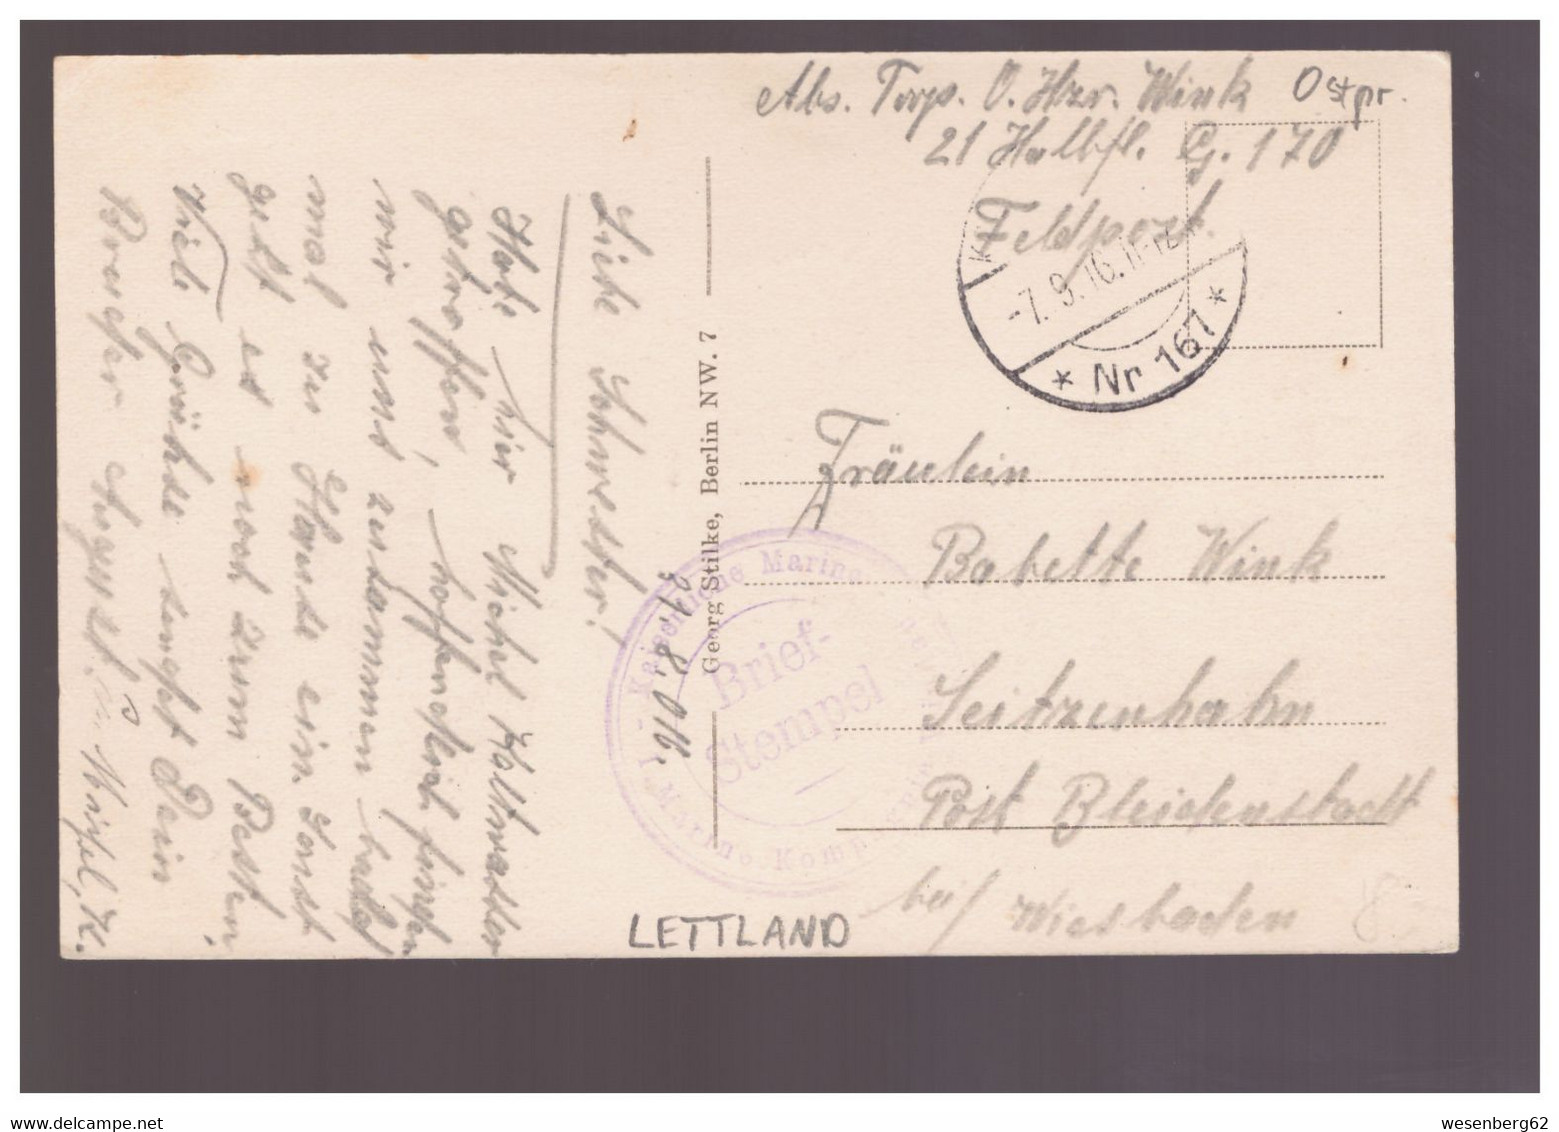 Abs. Torp. O. Hzr. Wink Ostpr.
21 Halbfl. G. 170
Feldpost.
-7. 9. 16. 11-12
* Nr 167 *
Fräulein
Babette Wink
Seitzenhahn
Post Bleidenstadt
bei/ Wiesbaden
Georg Stilke, Berlin NW. 7
Kaiserliche Marine
Brief-
Stempel
Komp.
31. 8. 016.
Liebe Schwester!
Habe hier Michel Kaltwasser
getroffen, hoffendlich finden
wir uns zusammen
mal zu Hause ein. Sonst
geht es noch zum Besten
Viel Grüße sendet Dein
Bruder August.
LETTLAND
wesenberg62